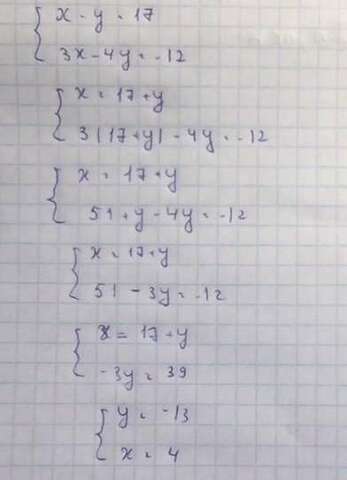 x - y = 17
3x - 4y = -12
x = 17 + y
3(17+y) - 4y = -12
x = 17 + y
51 + y - 4y = -12
x = 17 + y
51 - 3y = -12
x = 17 + y
-3y = 39
y = -13
x = 4